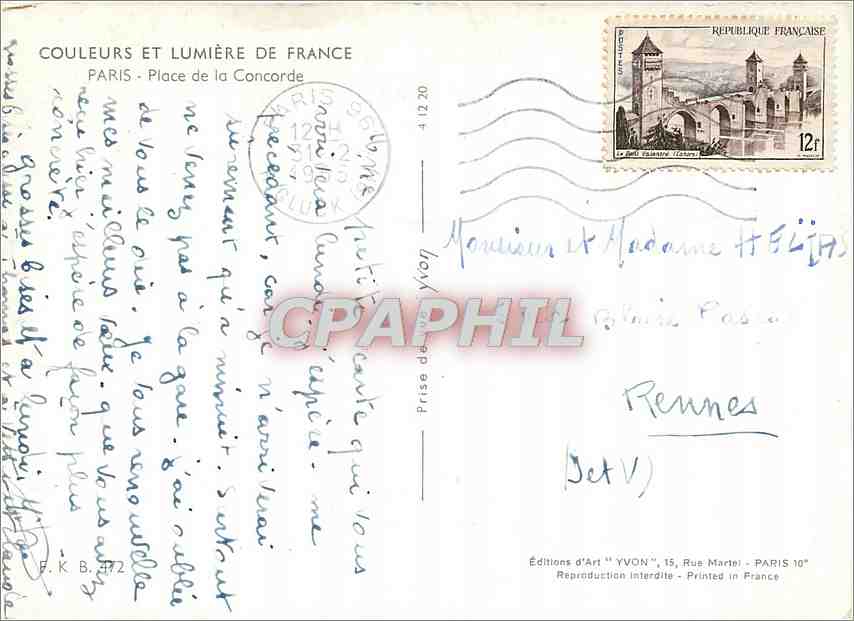 COULEURS ET LUMIÈRE DE FRANCE
PARIS - Place de la Concorde
une petite carte qui vous
précédant, car je n'arriverai
surement qu'à minuit. Surtout
ne venez pas à la gare. J'ai oublié
de vous le dire. Je vous renouvelle
mes meilleurs vœux que vous avez
reçu hier j'espère de façon plus
concrète.
grosses bises et à lundi.
grosses bises aussi à Thomas et à
F. K B. 472
4 12 20
Prise de vue Yvon
CPAPHIL
POSTES
REPUBLIQUE FRANÇAISE
Le Pont Valentré (Cahors)
12f
PARIS 96
12H
31-12
GLUCK
Monsieur et Madame HELIAS
Blaise Pascal
Rennes
(I et V)
Éditions d'Art "YVON", 15, Rue Martel - PARIS 10e
Reproduction interdite - Printed in France